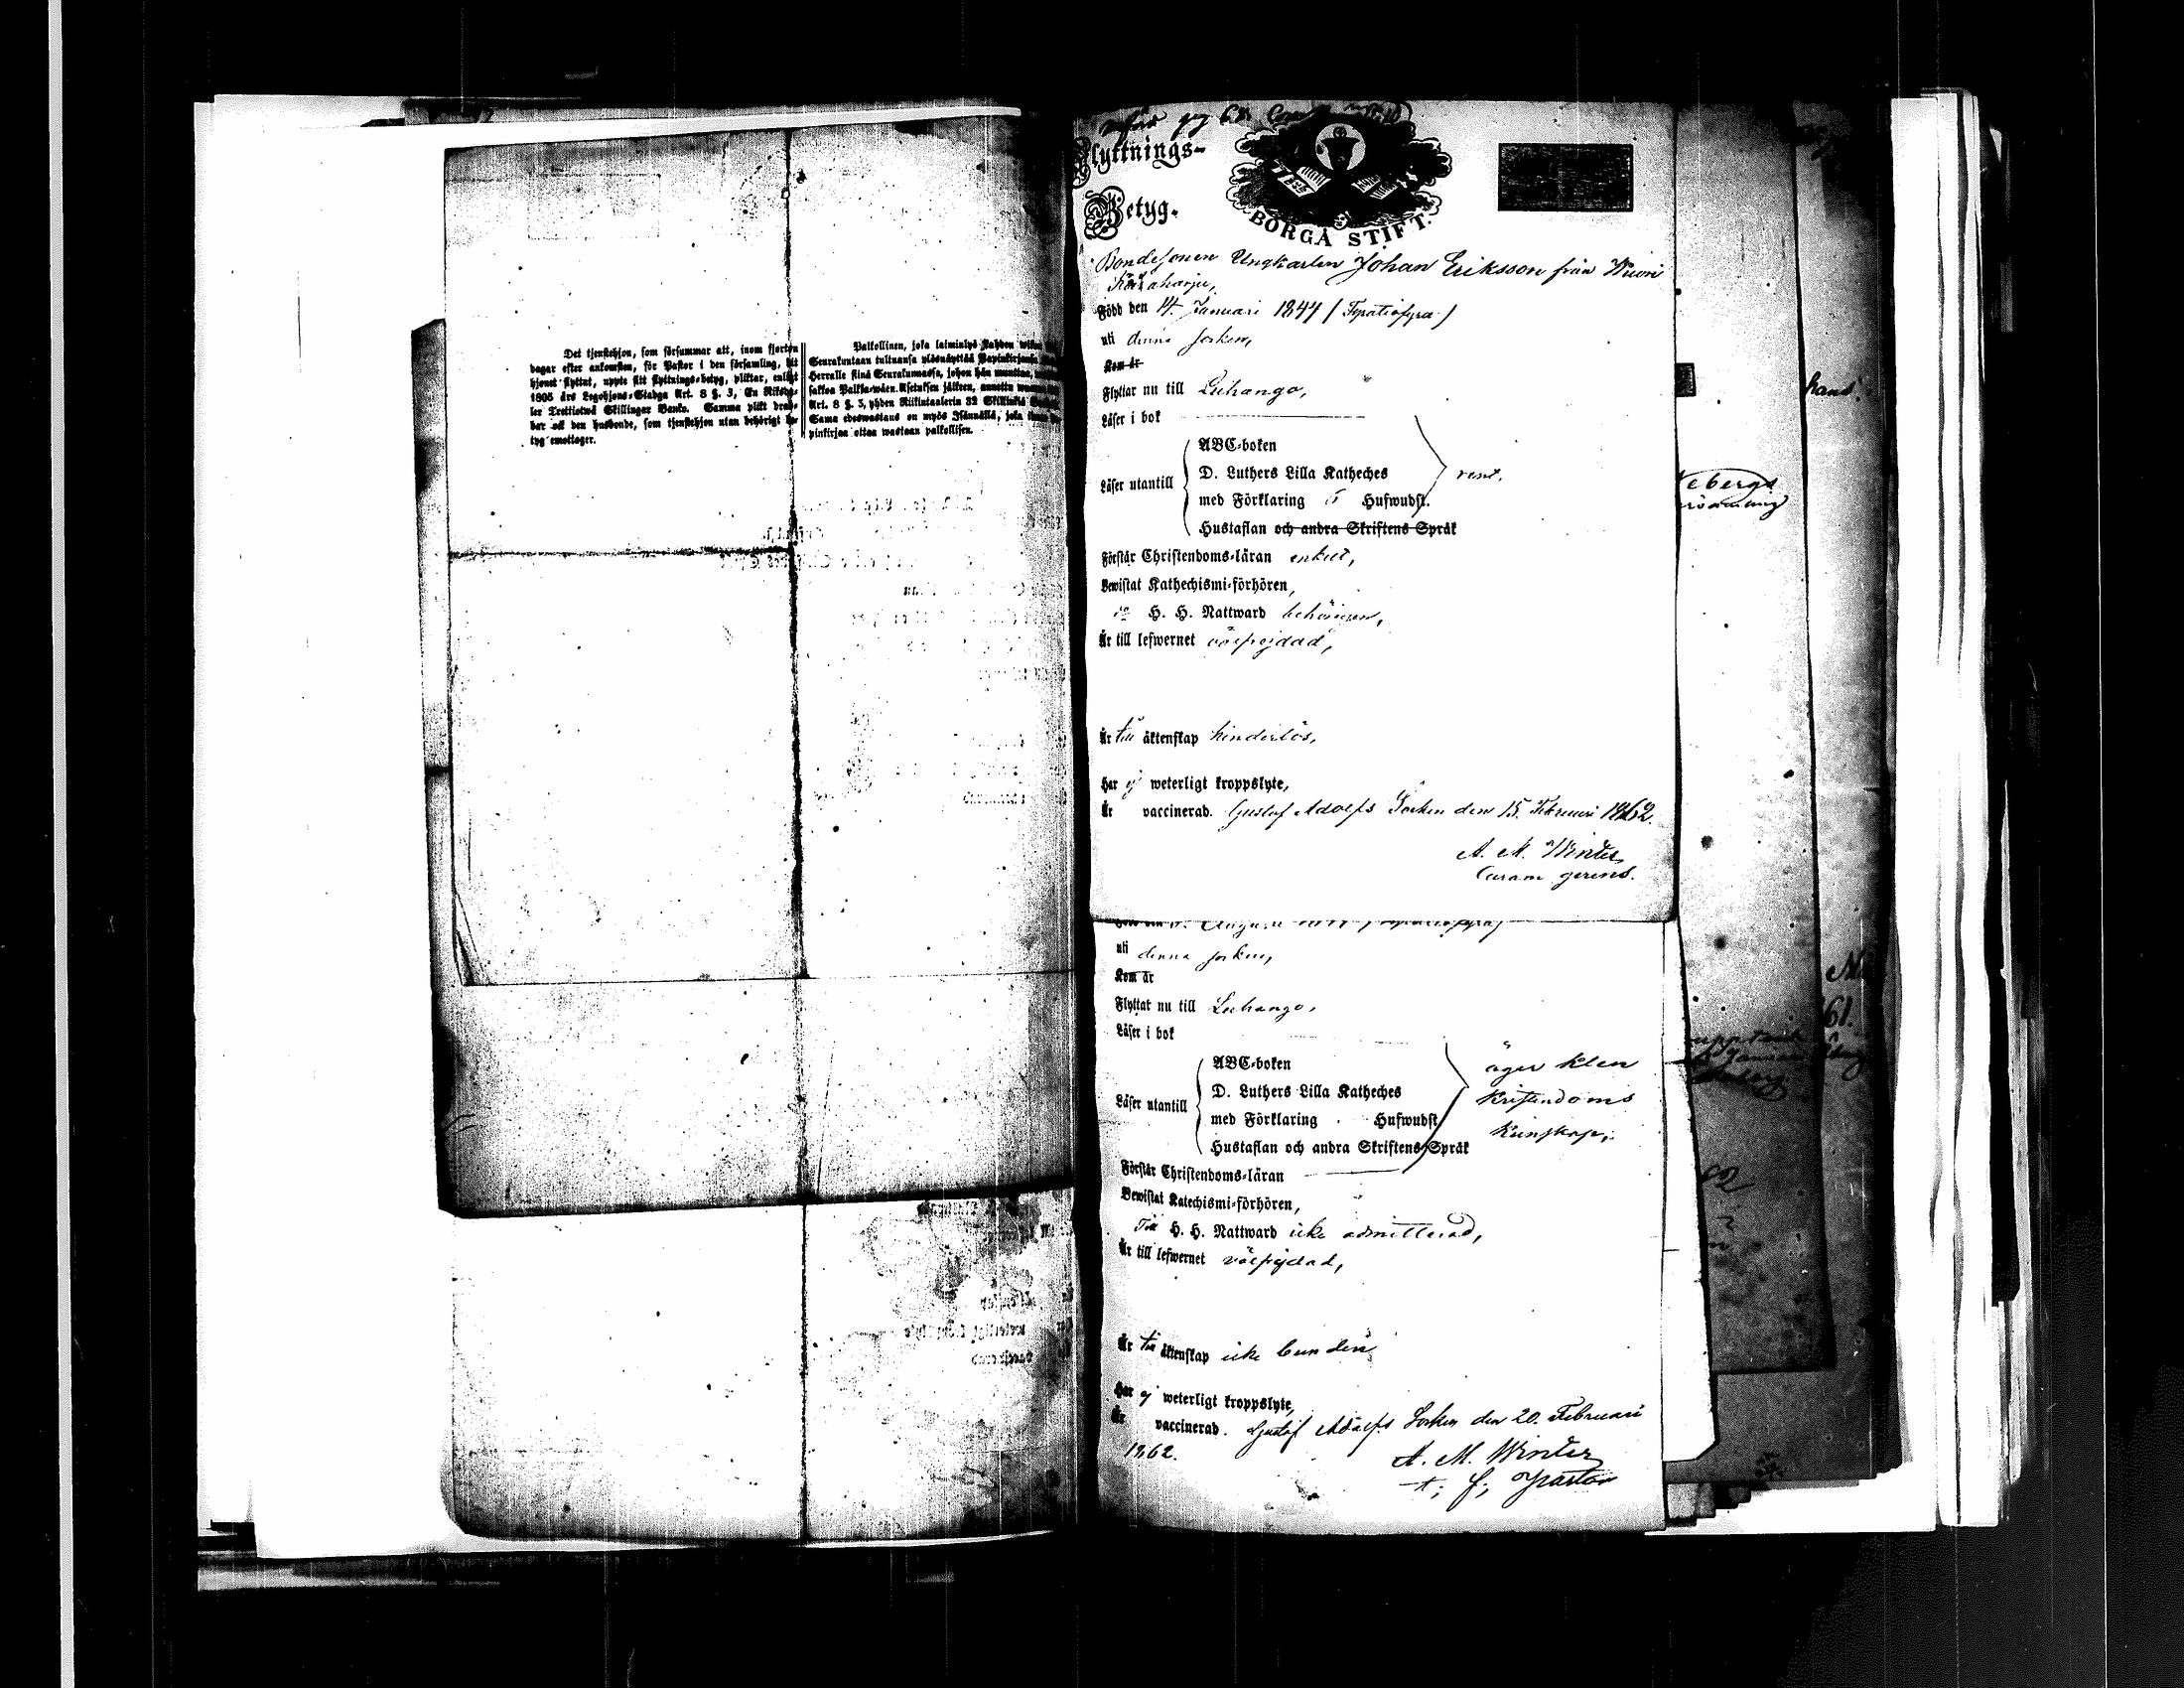 Det tjenstehjon, som försummar att, inom fjorton
dagar efter ankomsten, för Pastor i den församling, dit
hjonet flyttat, uppte sitt flyttnings-betyg, pliktar, enligt
1805 års Legohjons-Stadga Art. 8 §. 3, En Riksda-
ler Trettiotwå Skillinger Banko. Samma plikt drab-
bar ock den husbonde, som tjenstehjon utan behörigt be-
tyg emottager.
Palkollinen, joka laiminlyö kahden
Seurakuntaan tultuansa ylösnäyttää Papinkirjansa
Herralle siinä Seurakunnassa, johon hän muuttaa,
sakkoa Palkka-wäen Asetuksen jälkeen, annettu
Art. 8 §. 3, yhden Riikintaalerin 32 Skillinkiä
Sama edeswastaus on myös Isännällä, joka
pinkirjaa ottaa wastaan palkollisen.
Flyttnings-
Betyg.
BORGÅ STIFT.
Bondesonen Ungkarlen Johan Eriksson från
Född den 14. Januari 1844 (Fyratiofyra)
uti denna socken,
Kom år
Flyttar nu till Luhango,
Läser i bok
Läser utantill
ABC-boken
D. Luthers Lilla Katheches
med Förklaring o Hufwudst.
Hustaflan och andra Skriftens Språk
rent.
Förstår Christendoms-läran enkelt,
Bewistat Kathechismi-förhören,
H. H. Nattward behörigen,
Är till lefwernet välfrejdad,
Är till äktenskap hinderlös,
Har ej weterligt kroppslyte,
Är vaccinerad. Gustaf Adolfs Socken den 15. Februari 1862.
A. M. Winter
Curam gerens.
uti denna socken,
Kom år
Flyttat nu till Luhango,
Läser i bok
Läser utantill
ABC-boken
D. Luthers Lilla Katheches
med Förklaring Hufwudst
Hustaflan och andra Skriftens Språk
äger klen
Kristendoms
Kunskap;
Förstår Christendoms-läran
Bewistat Katechismi-förhören,
Till H. H. Nattward icke admitterad,
Är till lefwernet välfrejdad,
Är till äktenskap icke bunden,
Har ej weterligt kroppslyte,
Är vaccinerad. Gustaf Adolfs Socken den 20. Februari
1862.
A. M. Winter
t. f. Pastor